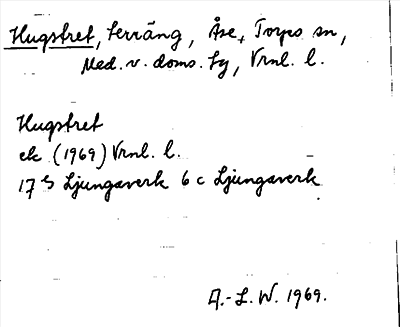 Hugstret, terräng, Åse, Torps sn,
Med. v. doms. tg, Vrnl. l.
Hugstret
ek (1969) Vrnl. l.
17 G Ljungaverk 6 c Ljungaverk
A.-L. W. 1969.